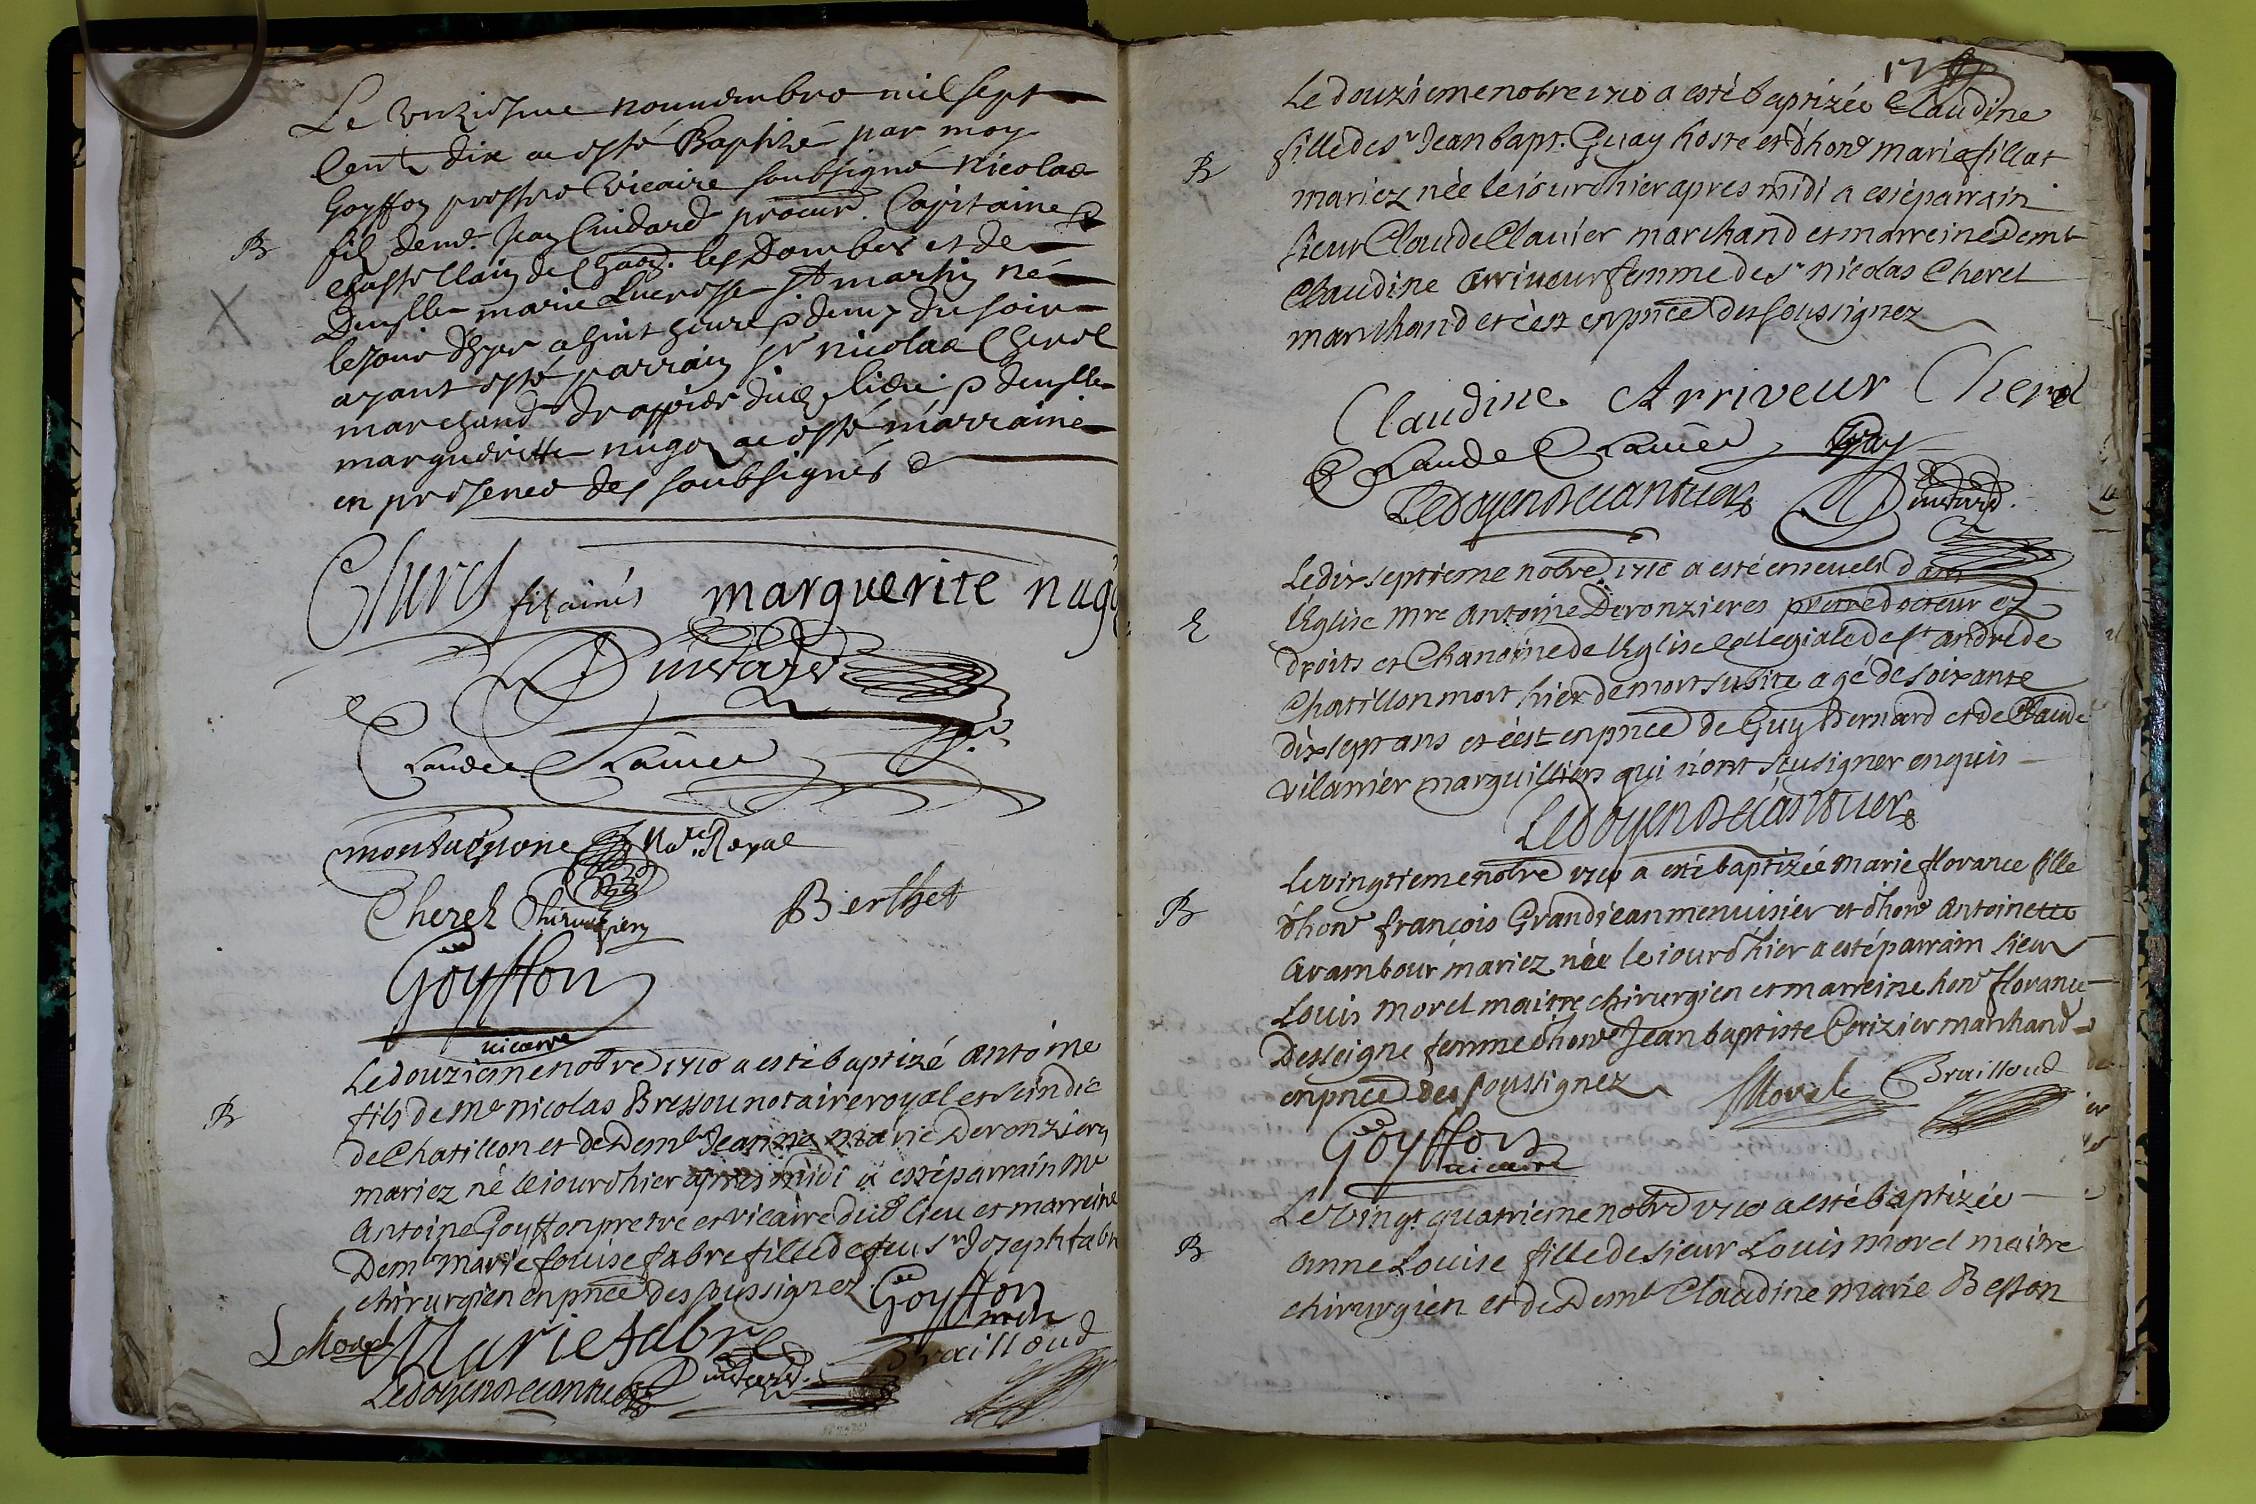 Le unziesme nouuembre mil sept
Cent dix a esté Baptizé par moy
Goyffon prestre Vicaire soubsigné Nicolas
B
filz de me. Jean Cuidard procur. Capitaine &
chastellain de Chaō. les Dombes et de
Duslle marie Lucresse St martin né
le jour d'hyer a huit heures & demy du soir
ayant esté parrain sr nicolas Cherel
marchand drappier dud. lieu & duslle
marguerite nugoz a esté marraine
en presence des soubsignés
Cherel fils ainés marguerite nugo
Cuidard
Claude Clauier
montaignone No.re Royal
Cherel Chirurgien Berthet
Goyffon
vicaire
Le douzieme nobre 1710 a esté baptizé antoine
B
fils de Me nicolas Bressou notaire royal et scindic
de Chatillon et de Demlle Jeanne marie Deronziere
mariez né le iour d'hier apres midi a esté parrain Mre
Antoine Goyffon pretre et vicaire dud. lieu et marreine
Demlle Marie Louise fabre fille de feu sr Joseph fabre
chirurgien en pnce des soussignez Goyffon
vicre
LMorel Marie fabre
Brailloud
Ledoyen Decantuer Cuidard
17
Le douzieme nobre 1710 a esté baptizée Claudine
B
fille de sr Jean bapt. Guay hoste et d'hone marie fillat
mariez née le iour d'hier apres midi a esté parrain
sieur Claude Clauier marchand et marreine Demlle
Claudine arriueur femme de sr nicolas Cherel
marchand et c'est en pnce des soussignez
Claudine Arriveur Cherel
Claude Clauier Guay
Ledoyen Decantuer Cuidard
Le dix septieme nobre 1710 a esté enseueli dans
E
l'Eglise Mre Antoine Deronzieres pretre docteur ez
droits et Chanoine de l'Eglise collegiale de St andré de
Chatillon mort hier de mort subite agé de soixante
dix sept ans et c'est en pnce de Guy Bernard et de Claude
vilanier marguilliers qui n'ont sceu signer enquis
Ledoyen Decantuer
Le vingtieme nobre 1710 a esté baptizée marie florance fille
B
d'hone françois Grandiean menuisier et d'hone antoinette
arambour mariez née le iour d'hier a esté parrain sieur
Louis morel maitre chirurgien et marreine hone florance
Desseigne femme d'hone Jean baptiste Cerizier marchand
en pnce des soussignez LMorel Brailloud
Goyffon
vicaire
Le vingt quatrieme nobre 1710 a esté baptizée
B
anne Louise fille de sieur Louis morel maitre
chirurgien et de Demlle Claudine marie Besson